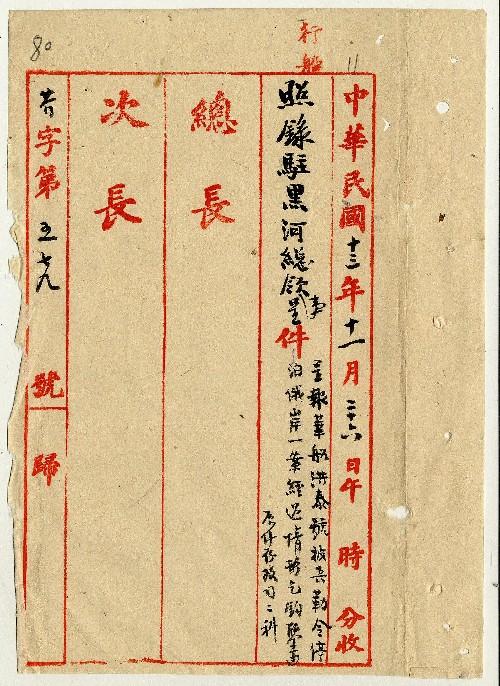 行船
中華民國十三年十一月二十六日午 時 分收
照錄駐黑河總領事呈件
呈報華船洪泰號被兵勒令停
泊俄岸一案經過情形乞鈞
原件存政司二科
總長
次長
字第五七九 號 歸
80